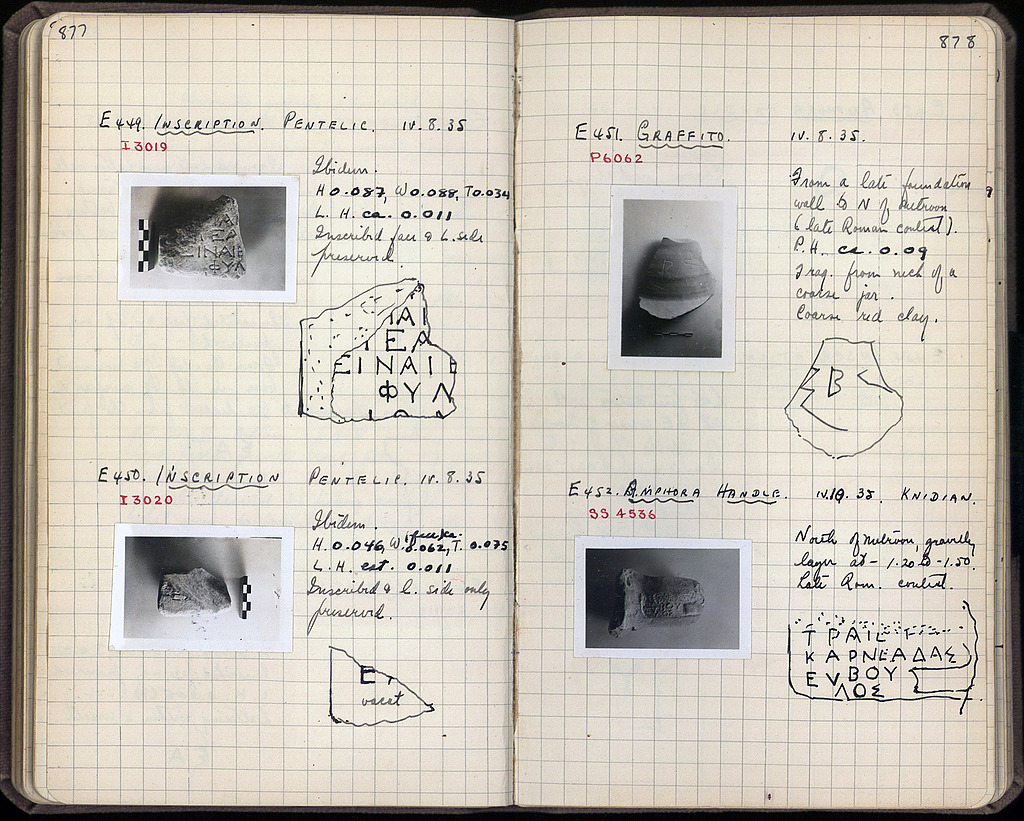 877
E 449. INSCRIPTION. PENTELIC. IV. 8. 35
I 3019
Ibidem.
H 0.087, W 0.088, T 0.034
L. H. ca. 0.011
Inscribed face & L. side
preserved.
ΑΙ
ΕΑ
ΕΙΝΑΙΕ
ΦΥΛ
E 450. INSCRIPTION PENTELIC. IV. 8. 35
I 3020
Ibidem.
H. 0.046, W. 0.062, T. 0.075
L. H. est. 0.011
Inscribed & L. side only
preserved.
Ε
vacat
878
E 451. GRAFFITO. IV. 8. 35.
P 6062
From a late foundation
wall to N of Metroon
(late Roman context).
P.H. ca. 0.09
Frag. from neck of a
coarse jar.
Coarse red clay.
Β
E 452. AMPHORA HANDLE. IV. 35. KNIDIAN.
SS 4536
North of Metroon, gravelly
layer at - 1.20 to - 1.50.
Late Rom. context.
ΚΑΡΝΕΑΔΑΣ
ΕΥΒΟΥ
ΛΟΣ